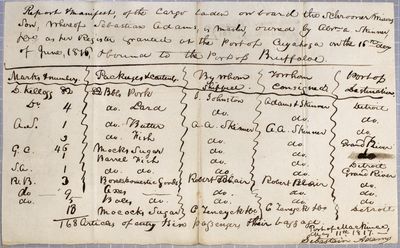 Report & manifest of the Cargo laden on board the Schooner
Son, Whereof Sebastian Adams, is master, owned by Abra Skinner
&co as her Register granted at the Port of Cuyahoga on the 15th day
of June, 1816, & bound to the Port of Buffaloe.
Marks & numbers Packages & contents By whom Shipped To whom Consigned Port of Destination
D. Kellogg 82 Bbls Pork J. Johnston Adams & Skinner Detroit
Do 4 do. Lard do. do. do.
A.S. 1 do. Butter A.A. Skinner A.A. Skinner do.
3 do. Fish do. do. Grand River
G.A. 46 Mococks Sugar do. do. do
1 Barrel Fish do. do. Detroit
S.A. 1 do. do. do. do. Grand River
R.B. 3 Boxes Robert Blair Robert Blair do.
do. Axes do. do. do.
do. Boxes do. do. do. do.
18 Mococks Sugar C Teneyck C Teneyck &co Detroit
168 Articles of entry passengers their baggage
Port of Mackinac,
May 11th 1817.
Sebastian Adams